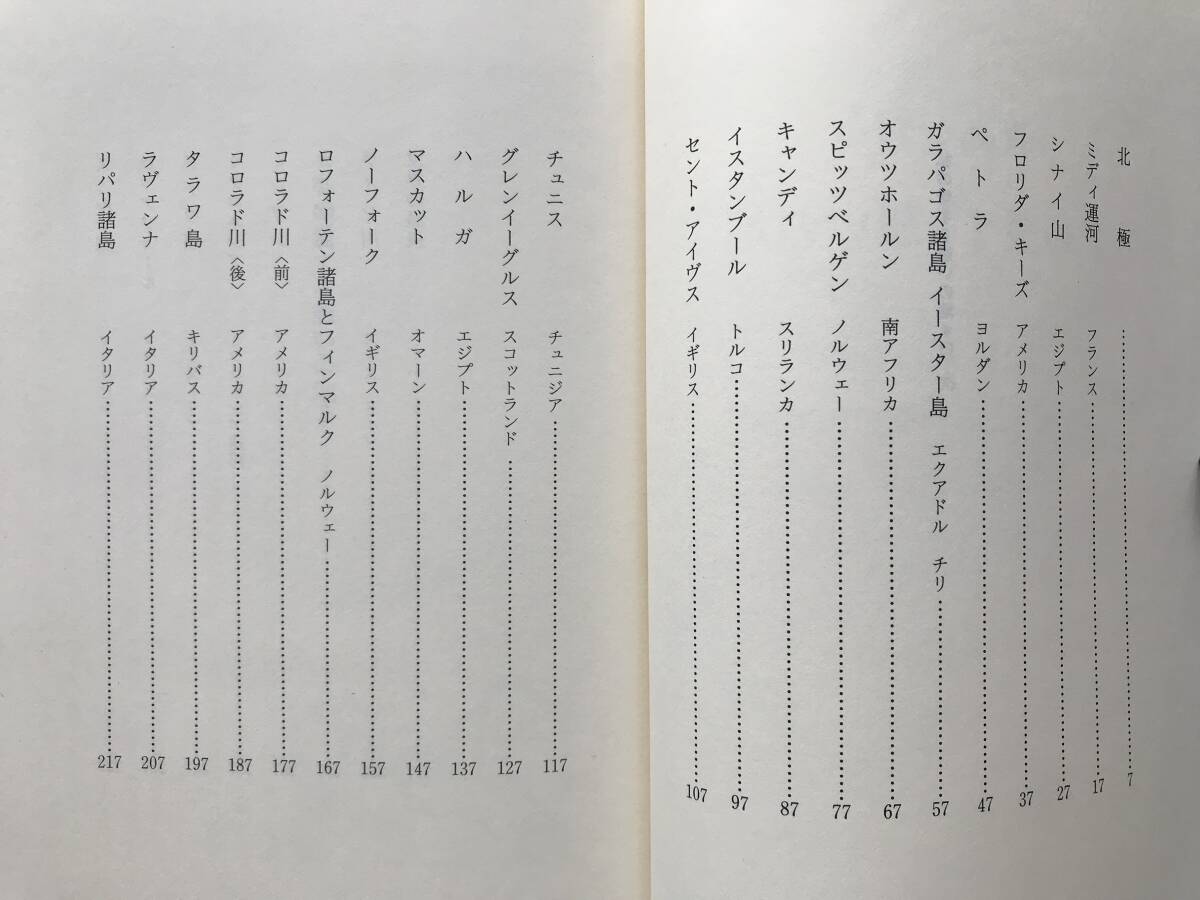 北極……………………………………7
ミディ運河 フランス……………………………………17
シナイ山 エジプト……………………………………27
フロリダ・キーズ アメリカ……………………………………37
ペトラ ヨルダン……………………………………47
ガラパゴス諸島 イースター島 エクアドル チリ……………………………………57
オウツホールン 南アフリカ……………………………………67
スピッツベルゲン ノルウェー……………………………………77
キャンディ スリランカ……………………………………87
イスタンブール トルコ……………………………………97
セント・アイヴス イギリス……………………………………107
チュニス チュニジア……………………………………117
グレンイーグルス スコットランド……………………………………127
ハルガ エジプト……………………………………137
マスカット オマーン……………………………………147
ノーフォーク イギリス……………………………………157
ロフォーテン諸島とフィンマルク ノルウェー……………………………………167
コロラド川〈前〉 アメリカ……………………………………177
コロラド川〈後〉 アメリカ……………………………………187
タラワ島 キリバス……………………………………197
ラヴェンナ イタリア……………………………………207
リパリ諸島 イタリア……………………………………217